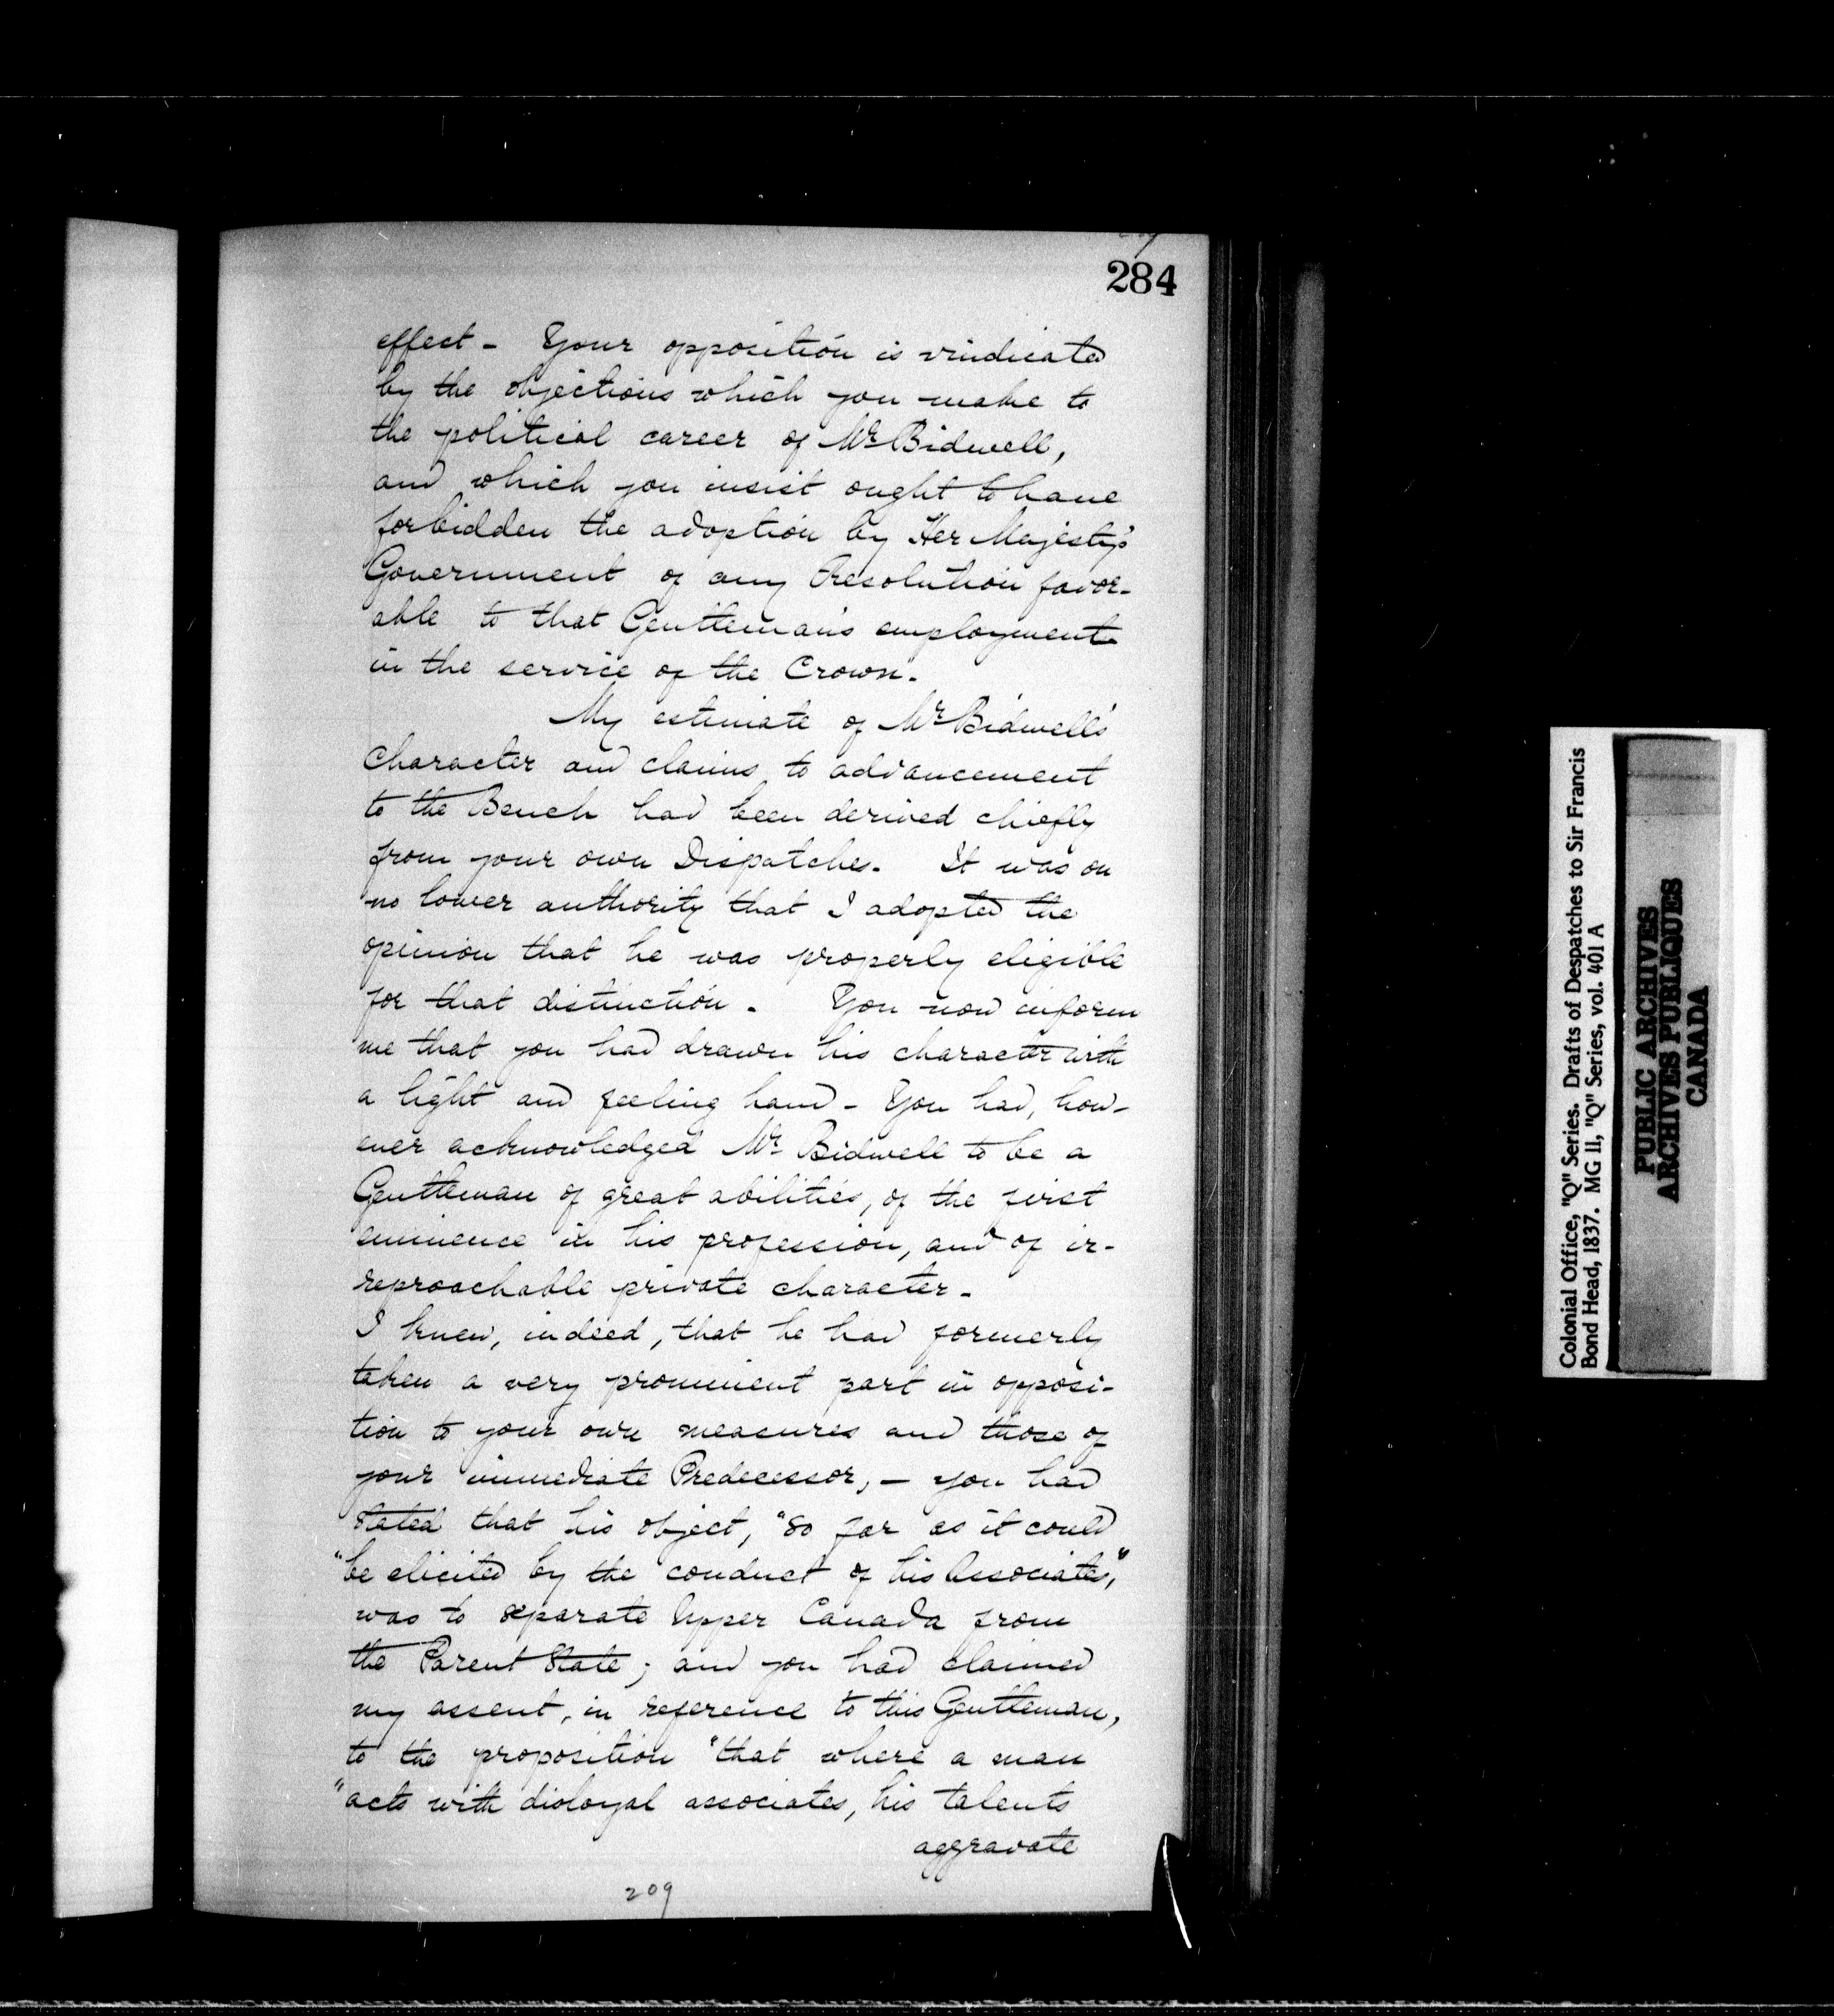 284
effect - Your opposition is vindicated
by the objections which you make to
the political career of Mr Bidwell,
and which you insist ought to have
forbidden the adoption by Her Majesty's
Government of any Resolution favor-
able to that Gentleman's employment
in the service of the Crown.
My estimate of Mr Bidwell's
character and claims to advancement
to the Bench had been derived chiefly
from your own Dispatches. It was on
no lower authority that I adopted the
opinion that he was properly eligible
for that distinction. You now inform
me that you had drawn his character with
a light and feeling hand - You had, how-
ever acknowledged Mr Bidwell to be a
Gentleman of great abilities, of the first
eminence in his profession, and of ir-
reproachable private character.
I knew, indeed, that he had formerly
taken a very prominent part in opposi-
tion to your own measures and those of
your immediate Predecessor, - you had
stated that his object, "so far as it could
"be elicited by the conduct of his Associates,"
was to separate Upper Canada from
the Parent State; and you had claimed
my assent, in reference to this Gentleman,
to the proposition "that where a man
"acts with disloyal associates, his talents
aggravate
209
Colonial Office, "Q" Series. Drafts of Despatches to Sir Francis
Bond Head, 1837. MG 11, "Q" Series, vol. 401 A
PUBLIC ARCHIVES
ARCHIVES PUBLIQUES
CANADA